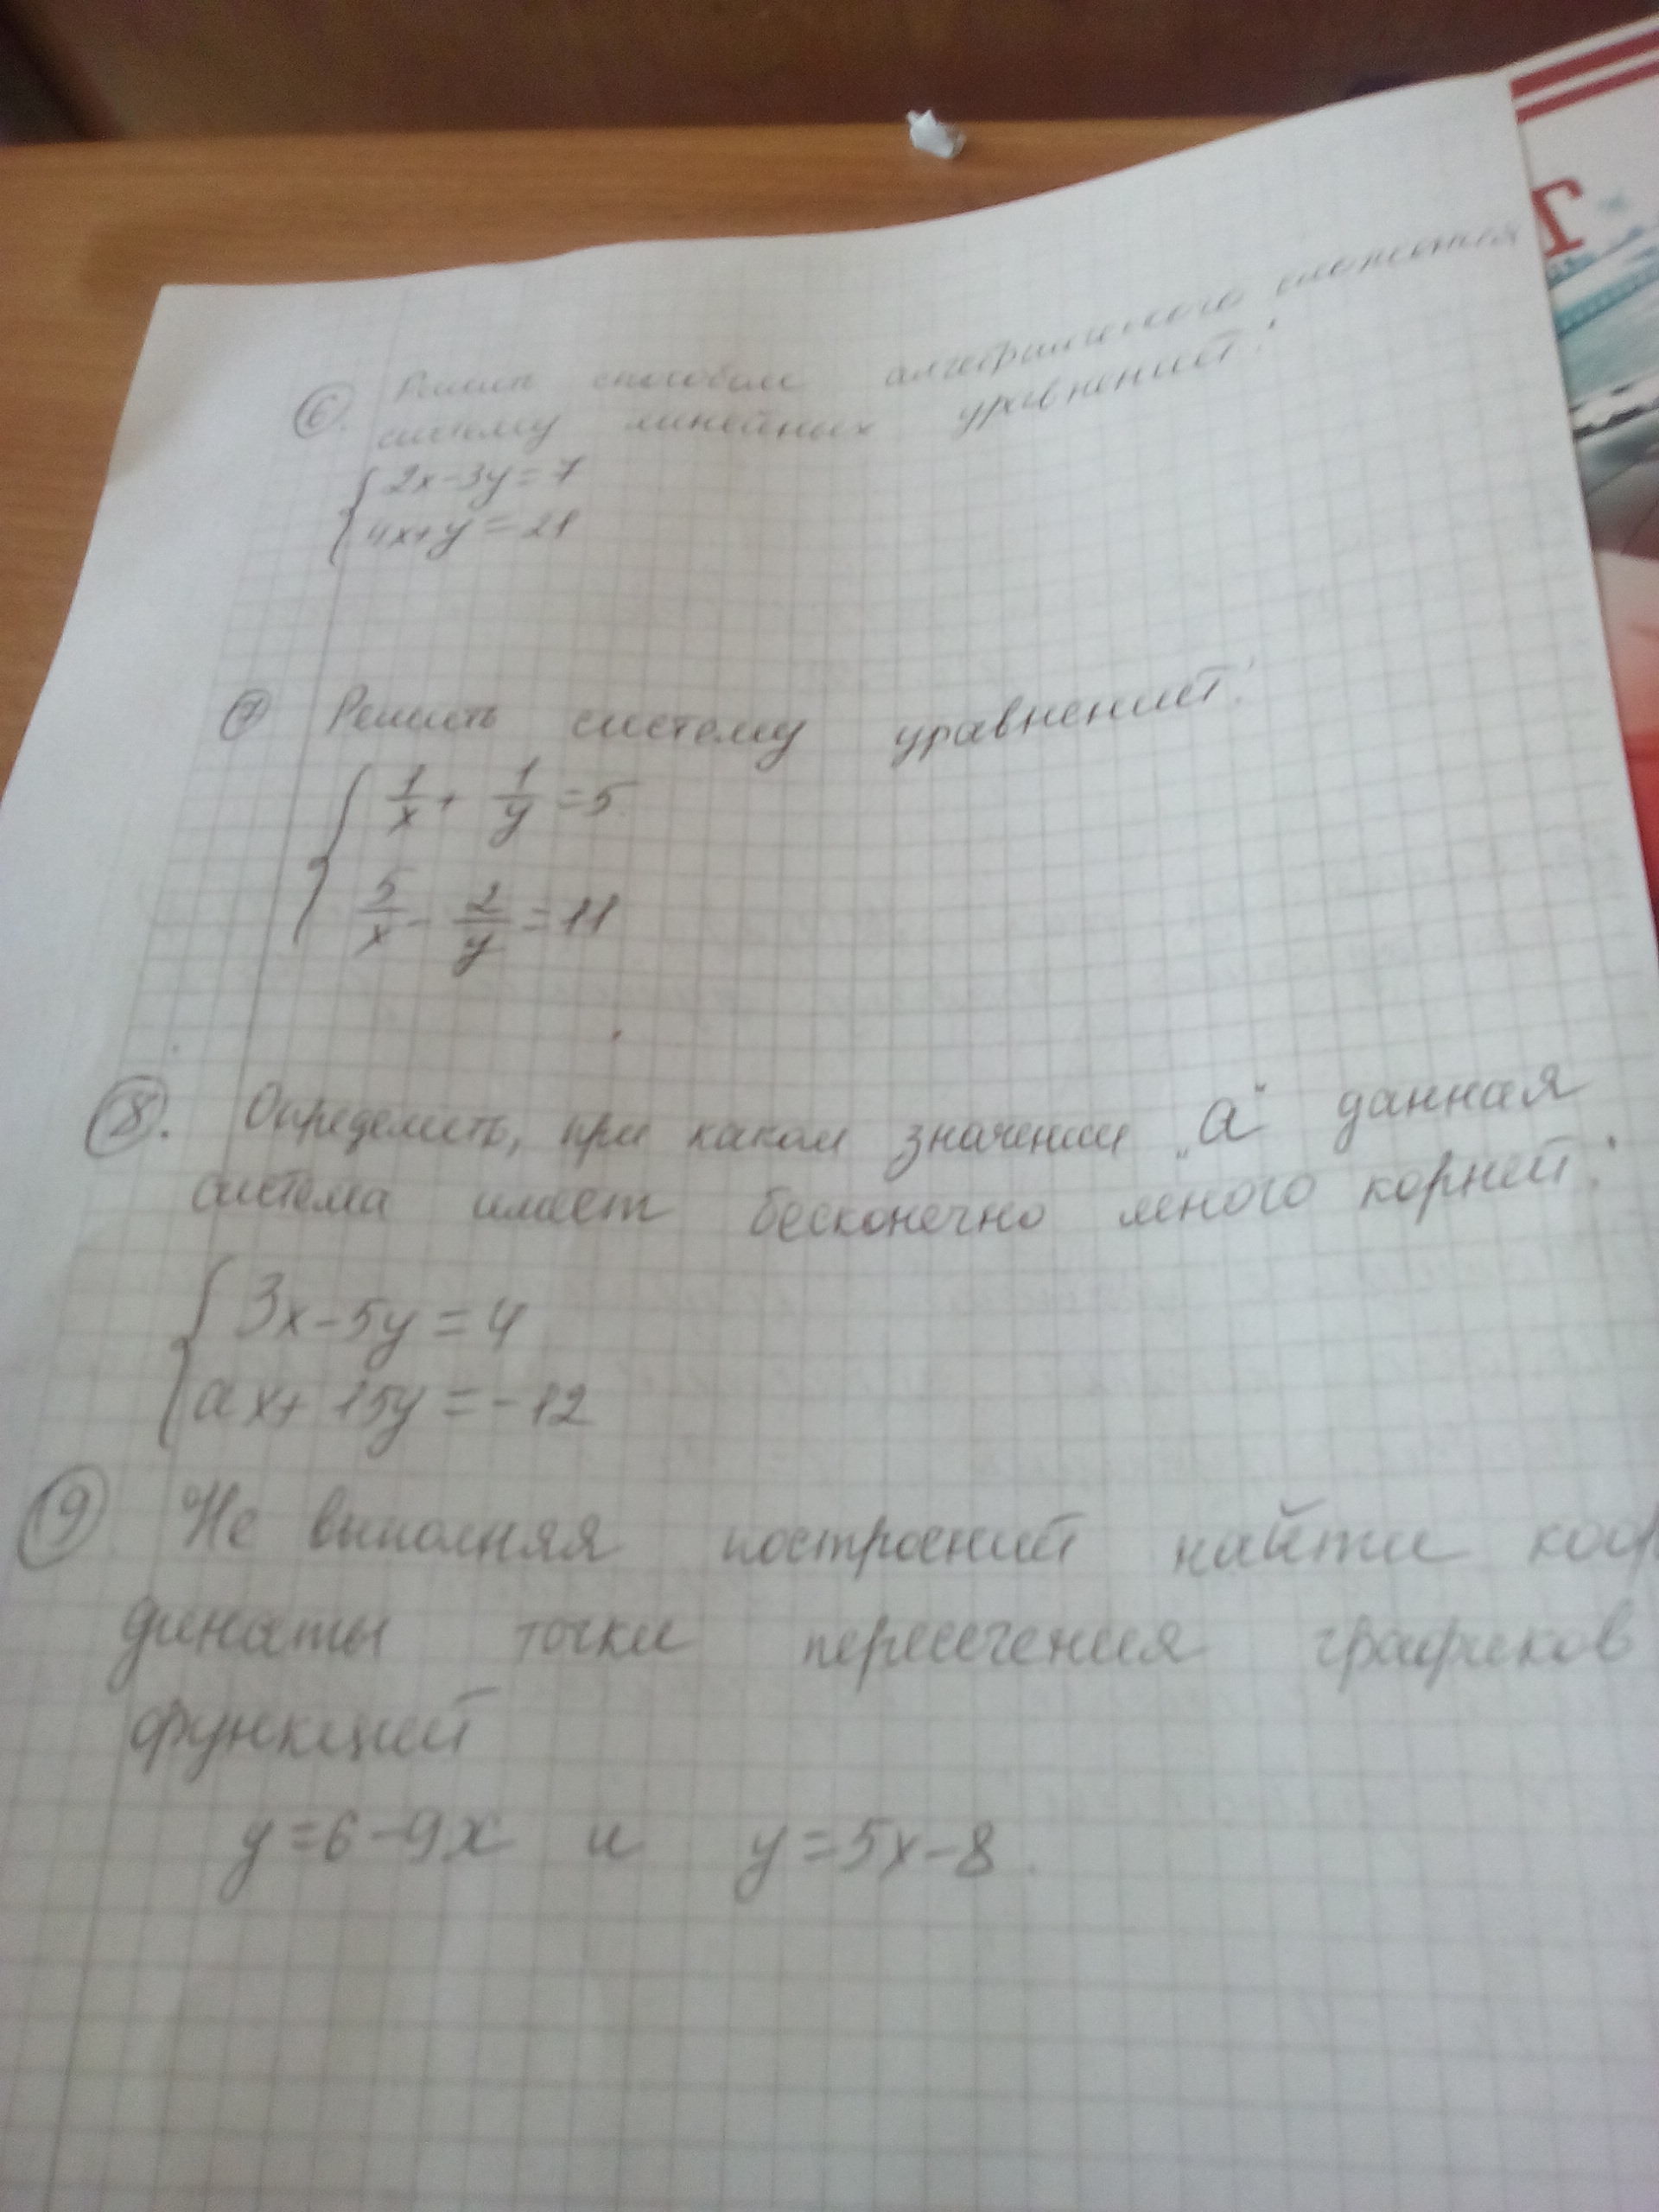 6. Решить способом алгебраического сложения
систему линейных уравнений:
{ 2x-3y=7
4x+y=21
7 Решить систему уравнений:
{ 1/x + 1/y = 5
5/x - 2/y = 11
8. Определить, при каком значении „a" данная
система имеет бесконечно много корней:
{ 3x-5y=4
ax+15y=-12
9. Не выполняя построений найти коор
динаты точки пересечения графиков
функций
y=6-9x и y=5x-8.
T